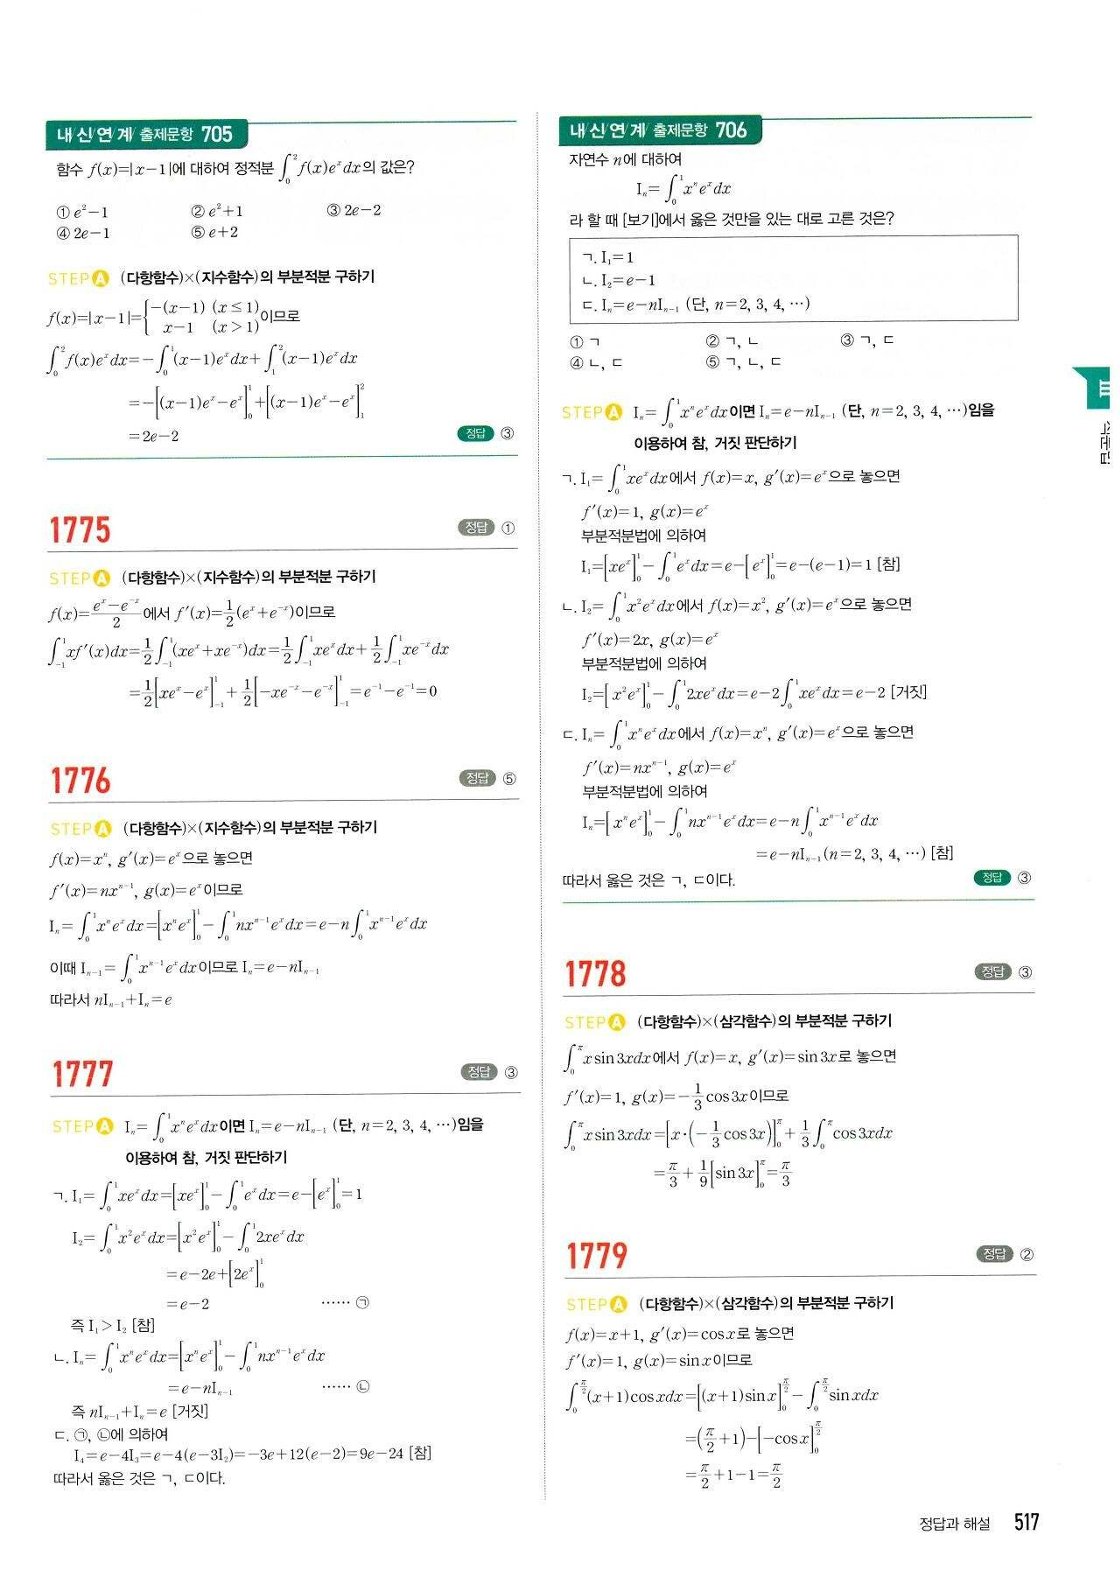 내신연계 출제문항 705
함수 f(x)=|x−1|에 대하여 정적분 ∫₀² f(x)eˣdx의 값은?
① e²−1 ② e²+1 ③ 2e−2
④ 2e−1 ⑤ e+2
STEP A (다항함수)×(지수함수)의 부분적분 구하기
f(x)=|x−1|={−(x−1) (x≤1), x−1 (x>1)이므로
∫₀² f(x)eˣdx=−∫₀¹(x−1)eˣdx+∫₁²(x−1)eˣdx
=−[(x−1)eˣ−eˣ]₀¹+[(x−1)eˣ−eˣ]₁²
=2e−2 정답 ③
1775 정답 ①
STEP A (다항함수)×(지수함수)의 부분적분 구하기
f(x)=(eˣ−e⁻ˣ)/2에서 f′(x)=1/2(eˣ+e⁻ˣ)이므로
∫₋₁¹xf′(x)dx=1/2∫₋₁¹(xeˣ+xe⁻ˣ)dx=1/2∫₋₁¹xeˣdx+1/2∫₋₁¹xe⁻ˣdx
=1/2[xeˣ−eˣ]₋₁¹+1/2[−xe⁻ˣ−e⁻ˣ]₋₁¹=e⁻¹−e⁻¹=0
1776 정답 ⑤
STEP A (다항함수)×(지수함수)의 부분적분 구하기
f(x)=xⁿ, g′(x)=eˣ으로 놓으면
f′(x)=nxⁿ⁻¹, g(x)=eˣ이므로
Iₙ=∫₀¹xⁿeˣdx=[xⁿeˣ]₀¹−∫₀¹nxⁿ⁻¹eˣdx=e−n∫₀¹xⁿ⁻¹eˣdx
이때 Iₙ₋₁=∫₀¹xⁿ⁻¹eˣdx이므로 Iₙ=e−nIₙ₋₁
따라서 nIₙ₋₁+Iₙ=e
1777 정답 ③
STEP A Iₙ=∫₀¹xⁿeˣdx이면 Iₙ=e−nIₙ₋₁ (단, n=2, 3, 4, ⋯)임을
이용하여 참, 거짓 판단하기
ㄱ. I₁=∫₀¹xeˣdx=[xeˣ]₀¹−∫₀¹eˣdx=e−[eˣ]₀¹=1
I₂=∫₀¹x²eˣdx=[x²eˣ]₀¹−∫₀¹2xeˣdx
=e−2e+[2eˣ]₀¹
=e−2 ⋯⋯ ㉠
즉 I₁>I₂ [참]
ㄴ. Iₙ=∫₀¹xⁿeˣdx=[xⁿeˣ]₀¹−∫₀¹nxⁿ⁻¹eˣdx
=e−nIₙ₋₁ ⋯⋯ ㉡
즉 nIₙ₋₁+Iₙ=e [거짓]
ㄷ. ㉠, ㉡에 의하여
I₄=e−4I₃=e−4(e−3I₂)=−3e+12(e−2)=9e−24 [참]
따라서 옳은 것은 ㄱ, ㄷ이다.
내신연계 출제문항 706
자연수 n에 대하여
Iₙ=∫₀¹xⁿeˣdx
라 할 때 [보기]에서 옳은 것만을 있는 대로 고른 것은?
ㄱ. I₁=1
ㄴ. I₂=e−1
ㄷ. Iₙ=e−nIₙ₋₁ (단, n=2, 3, 4, ⋯)
① ㄱ ② ㄱ, ㄴ ③ ㄱ, ㄷ
④ ㄴ, ㄷ ⑤ ㄱ, ㄴ, ㄷ
STEP A Iₙ=∫₀¹xⁿeˣdx이면 Iₙ=e−nIₙ₋₁ (단, n=2, 3, 4, ⋯)임을
이용하여 참, 거짓 판단하기
ㄱ. I₁=∫₀¹xeˣdx에서 f(x)=x, g′(x)=eˣ으로 놓으면
f′(x)=1, g(x)=eˣ
부분적분법에 의하여
I₁=[xeˣ]₀¹−∫₀¹eˣdx=e−[eˣ]₀¹=e−(e−1)=1 [참]
ㄴ. I₂=∫₀¹x²eˣdx에서 f(x)=x², g′(x)=eˣ으로 놓으면
f′(x)=2x, g(x)=eˣ
부분적분법에 의하여
I₂=[x²eˣ]₀¹−∫₀¹2xeˣdx=e−2∫₀¹xeˣdx=e−2 [거짓]
ㄷ. Iₙ=∫₀¹xⁿeˣdx에서 f(x)=xⁿ, g′(x)=eˣ으로 놓으면
f′(x)=nxⁿ⁻¹, g(x)=eˣ
부분적분법에 의하여
Iₙ=[xⁿeˣ]₀¹−∫₀¹nxⁿ⁻¹eˣdx=e−n∫₀¹xⁿ⁻¹eˣdx
=e−nIₙ₋₁(n=2, 3, 4, ⋯) [참]
따라서 옳은 것은 ㄱ, ㄷ이다. 정답 ③
1778 정답 ③
STEP A (다항함수)×(삼각함수)의 부분적분 구하기
∫₀^π x sin 3xdx에서 f(x)=x, g′(x)=sin 3x로 놓으면
f′(x)=1, g(x)=−1/3 cos 3x이므로
∫₀^π x sin 3xdx=[x·(−1/3 cos 3x)]₀^π+1/3∫₀^π cos 3xdx
=π/3+1/9[sin 3x]₀^π=π/3
1779 정답 ②
STEP A (다항함수)×(삼각함수)의 부분적분 구하기
f(x)=x+1, g′(x)=cos x로 놓으면
f′(x)=1, g(x)=sin x이므로
∫₀^(π/2)(x+1)cos xdx=[(x+1)sin x]₀^(π/2)−∫₀^(π/2)sin xdx
=(π/2+1)−[−cos x]₀^(π/2)
=π/2+1−1=π/2
Ⅲ
정답과 해설 517